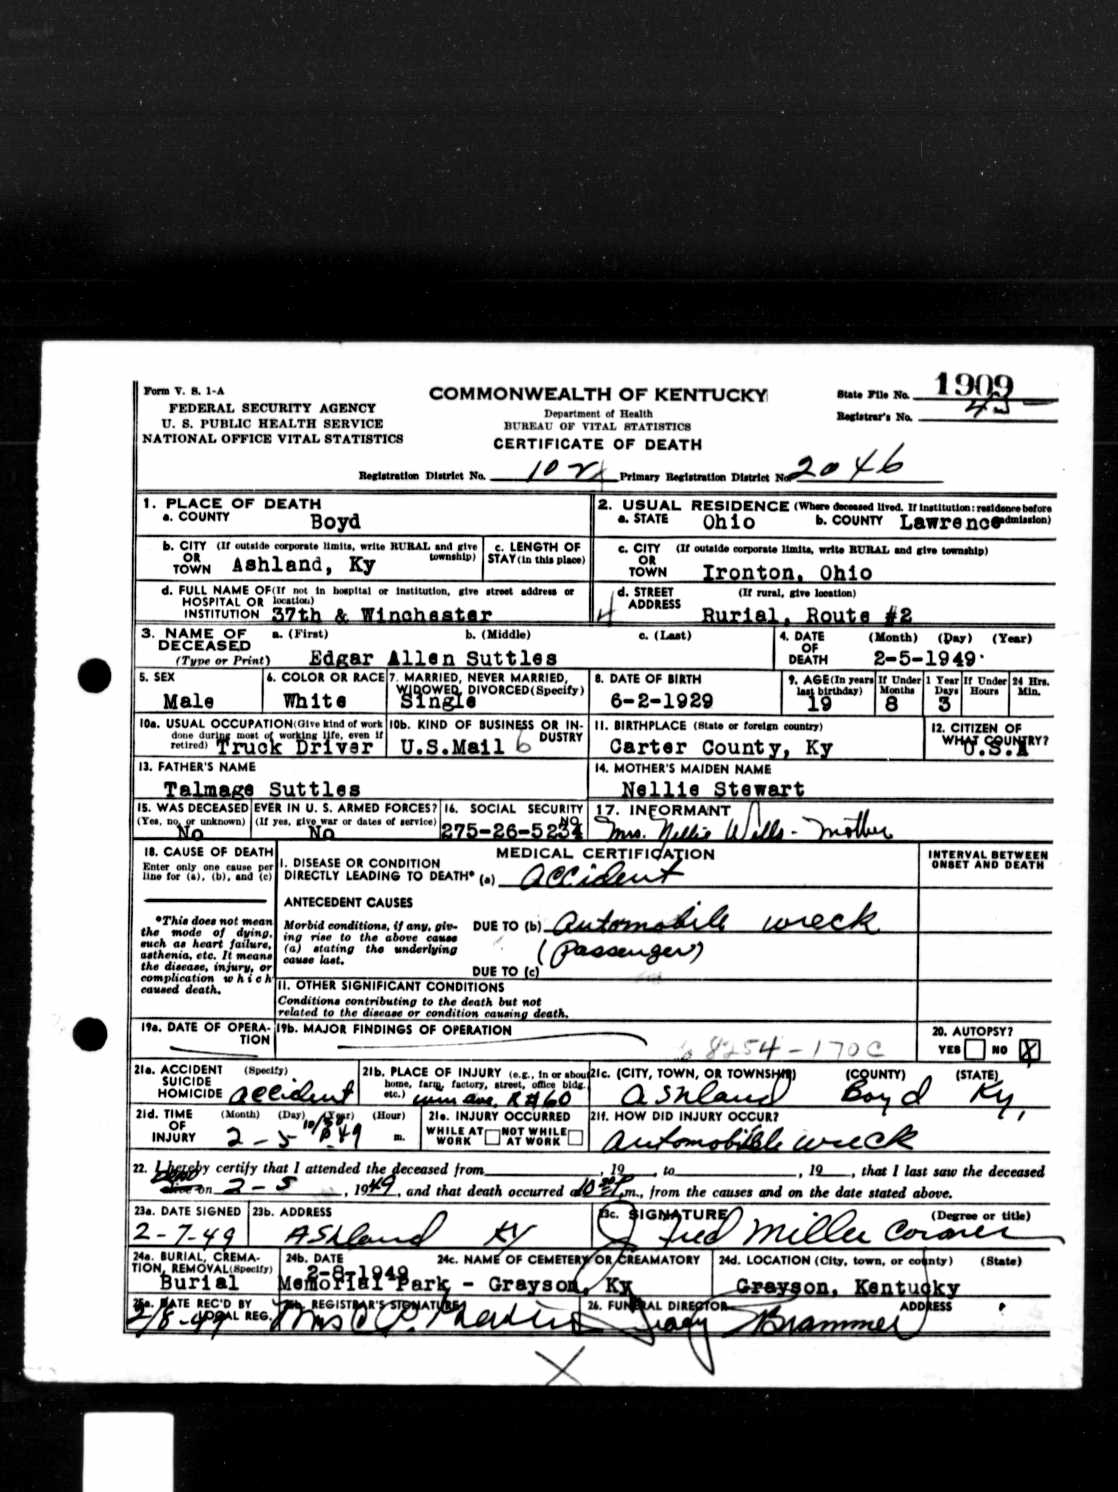 Form V. S. 1-A
FEDERAL SECURITY AGENCY
U. S. PUBLIC HEALTH SERVICE
NATIONAL OFFICE VITAL STATISTICS
COMMONWEALTH OF KENTUCKY
Department of Health
BUREAU OF VITAL STATISTICS
CERTIFICATE OF DEATH
State File No. 1909
Registrar's No. 45
Registration District No. 102 Primary Registration District No. 2046
1. PLACE OF DEATH
a. COUNTY Boyd
2. USUAL RESIDENCE (Where deceased lived. If institution: residence before admission)
a. STATE Ohio b. COUNTY Lawrence
b. CITY (If outside corporate limits, write RURAL and give township)
OR TOWN Ashland, Ky
c. LENGTH OF STAY (in this place)
c. CITY (If outside corporate limits, write RURAL and give township)
OR TOWN Ironton, Ohio
d. FULL NAME OF (If not in hospital or institution, give street address or location)
HOSPITAL OR INSTITUTION 37th & Winchester
d. STREET ADDRESS (If rural, give location)
Rurial, Route #2
3. NAME OF DECEASED (Type or Print) a. (First) b. (Middle) c. (Last)
Edgar Allen Suttles
4. DATE OF DEATH (Month) (Day) (Year)
2-5-1949
5. SEX
Male
6. COLOR OR RACE
White
7. MARRIED, NEVER MARRIED, WIDOWED, DIVORCED (Specify)
Single
8. DATE OF BIRTH
6-2-1929
9. AGE (In years last birthday) If Under 1 Year Months Days If Under 24 Hrs. Hours Min.
19 8 3
10a. USUAL OCCUPATION (Give kind of work done during most of working life, even if retired)
Truck Driver
10b. KIND OF BUSINESS OR INDUSTRY
U.S.Mail 6
11. BIRTHPLACE (State or foreign country)
Carter County, Ky
12. CITIZEN OF WHAT COUNTRY?
U.S.A
13. FATHER'S NAME
Talmage Suttles
14. MOTHER'S MAIDEN NAME
Nellie Stewart
15. WAS DECEASED EVER IN U. S. ARMED FORCES?
(Yes, no, or unknown) (If yes, give war or dates of service)
No No
16. SOCIAL SECURITY NO.
275-26-5234
17. INFORMANT
Mrs. Nellie Wells - Mother
18. CAUSE OF DEATH
Enter only one cause per line for (a), (b), and (c)
*This does not mean the mode of dying, such as heart failure, asthenia, etc. It means the disease, injury, or complication which caused death.
MEDICAL CERTIFICATION
INTERVAL BETWEEN ONSET AND DEATH
I. DISEASE OR CONDITION DIRECTLY LEADING TO DEATH* (a) Accident
ANTECEDENT CAUSES
Morbid conditions, if any, giving rise to the above cause (a) stating the underlying cause last.
DUE TO (b) Automobile wreck
(Passenger)
DUE TO (c)
II. OTHER SIGNIFICANT CONDITIONS
Conditions contributing to the death but not related to the disease or condition causing death.
19a. DATE OF OPERATION
19b. MAJOR FINDINGS OF OPERATION
8254-170C
20. AUTOPSY?
YES NO X
21a. ACCIDENT SUICIDE HOMICIDE (Specify)
accident
21b. PLACE OF INJURY (e.g., in or about home, farm, factory, street, office bldg. etc.)
Winn ave, R #60
21c. (CITY, TOWN, OR TOWNSHIP) (COUNTY) (STATE)
Ashland Boyd Ky,
21d. TIME OF INJURY (Month) (Day) (Year) (Hour) m.
2-5 49
21e. INJURY OCCURRED
WHILE AT WORK NOT WHILE AT WORK
21f. HOW DID INJURY OCCUR?
Automobile wreck
22. I hereby certify that I attended the deceased from , 19 , to , 19 , that I last saw the deceased
on 2-5, 1949, and that death occurred at m., from the causes and on the date stated above.
23a. DATE SIGNED
2-7-49
23b. ADDRESS
Ashland Ky
23c. SIGNATURE (Degree or title)
J Fred Miller Coroner
24a. BURIAL, CREMATION, REMOVAL (Specify)
Burial
24b. DATE
2-8-1949
24c. NAME OF CEMETERY OR CREAMATORY
Memorial Park - Grayson, Ky
24d. LOCATION (City, town, or county) (State)
Grayson, Kentucky
25a. DATE REC'D BY LOCAL REG.
2/8-49
25b. REGISTRAR'S SIGNATURE
Mrs
26. FUNERAL DIRECTOR ADDRESS
Tracy Brammer
X